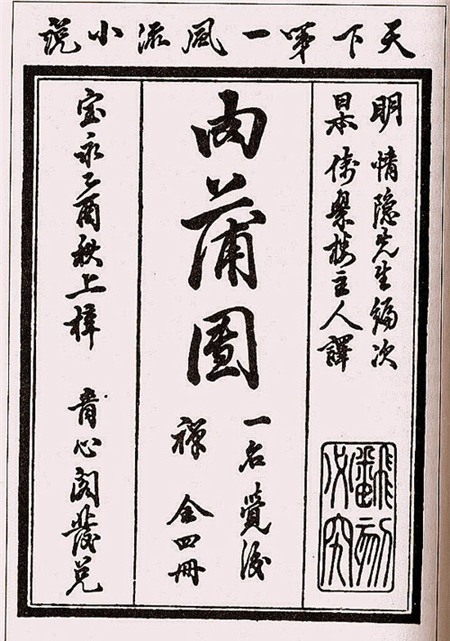 天下第一風流小説
明 情隐先生編次
日本 倚翠樓主人譯
肉蒲團
一名覺後
禪 全四冊
宝永乙酉秋上梓 青心閣發兌
飜刻
必究